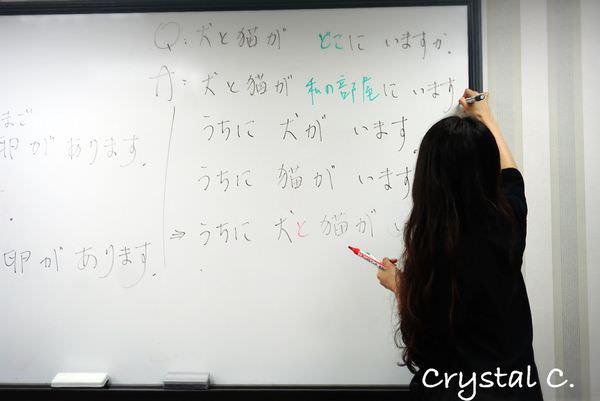 まご
卵があります。
卵があります。
Q: 犬と猫が どこに いますか。
A: 犬と猫が 私の部屋に います
うちに 犬が います。
うちに 猫が います。
⇒ うちに 犬と猫が
Crystal C.